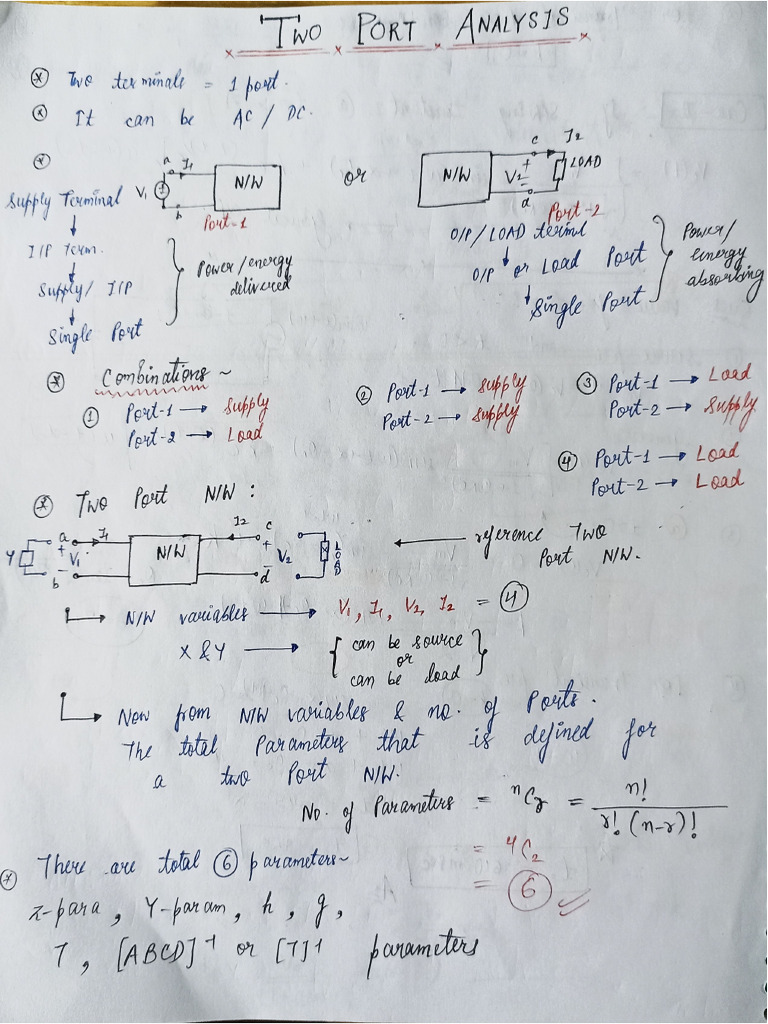 TWO PORT ANALYSIS
* Two terminals = 1 port.
* It can be AC / DC.
*
a I1 V1 b N/W Port-1
or
N/W c I2 + V2 - d LOAD Port-2
Supply Terminal
I/P term.
Supply/ I/P
Single Port
Power/energy
delivered
O/P / LOAD terminl
O/P or Load Port
Single Port
Power/
energy
absorbing
* Combinations ~
① Port-1 → Supply
Port-2 → Load
② Port-1 → Supply
Port-2 → Supply
③ Port-1 → Load
Port-2 → Supply
④ Port-1 → Load
Port-2 → Load
* Two Port N/W :
Y a + V1 - b I1 N/W I2 c + V2 - d X LOAD
← reference Two
Port N/W.
→ N/W variables → V1, I1, V2, I2 = ④
X & Y → { can be source
or
can be load }
→ Now from N/W variables & no. of Ports.
The total Parameters that is defined for
a two Port N/W.
No. of Parameters = nCr = n! / r! (n-r)!
= 4C2
= ⑥
* There are total ⑥ parameters~
z-para, Y-param, h, g,
T, [ABCD]-1 or [T]-1 parameters